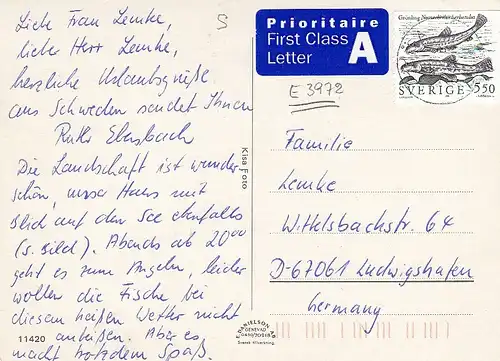 Liebe Frau Lemke,
lieber Herr Lemke,
herzliche Urlaubsgrüße
aus Schweden sendet Ihnen
Ruth Ebersbach
Die Landschaft ist wunder-
schön, unser Haus mit
Blick auf den See ebenfalls
(s. Bild). Abends ab 20⁰⁰
geht es zum Angeln, leider
wollen die Fische bei
diesem heißen Wetter nicht
anbeißen. Aber es
macht trotzdem Spaß.
11420
S
Kisa Foto
Prioritaire
First Class
Letter
A
E 3972
Grönling Noemacheilus barbatulus
SVERIGE 5,50
Familie
Lemke
Wittelsbachstr. 64
D-67061 Ludwigshafen
Germany
E. DANIELSON AB
GENEVAD
Svensk tillverkning.